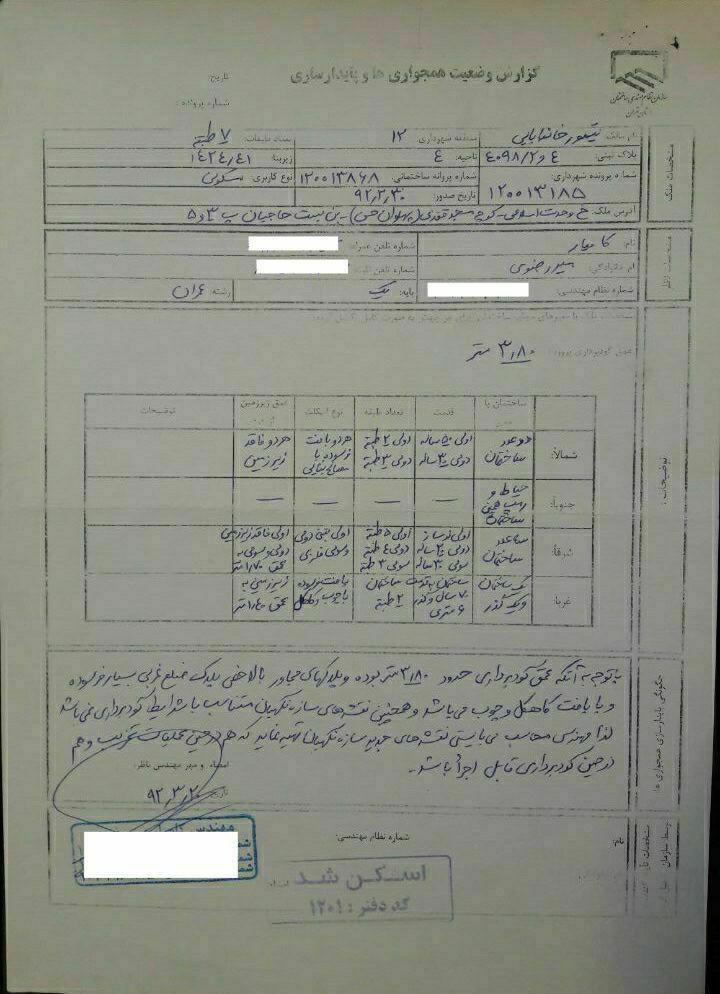 گزارش وضعیت همجواری ها و پایدارسازی
سازمان نظام مهندسی ساختمان
استان تهران
تاریخ:
شماره پرونده:
مشخصات ملک
نام مالک: تیمور خانبابایی منطقه شهرداری: ۱۲ تعداد طبقات: ۷ طبقه
پلاک ثبتی: ۴ و ۴۰۹۸/۲ ناحیه: ۴ زیربنا: ۱۴۲۴/۴۱
شماره پرونده شهرداری: ۱۲۰۰۱۳۱۸۵ شماره پروانه ساختمانی: ۱۲۰۰۱۳۸۶۸ نوع کاربری: مسکونی
تاریخ صدور: ۹۲,۲,۳۰
آدرس ملک: خ وحدت اسلامی - کوچه مسجد قندی (پهلوان حسن) - بن بست حاجیان پ ۳ و ۵
نام: کامیار شماره تلفن همراه:
نام خانوادگی: میررضوی شماره تلفن ثابت:
شماره نظام مهندسی: پایه: یک رشته: عمران
توضیحات:
عمق گودبرداری پروژه: ۳٫۸۰ متر
ساختمان یا معبر قدمت تعداد طبقه نوع اسکلت عمق زیرزمین توضیحات
شمالاً: دو عدد ساختمان اولی ۵۰ ساله دومی ۳۰ ساله اولی ۲ طبقه دومی ۳ طبقه هر دو بافت فرسوده با مصالح بنایی هر دو فاقد زیرزمین
جنوباً: حیاط و ساختمان — — — —
شرقاً: سه عدد ساختمان اولی نوساز دومی ۲۰ ساله سومی ۳۰ ساله اولی ۵ طبقه دومی ۴ طبقه سومی ۳ طبقه اولی بتنی دومی و سومی فلزی اولی فاقد زیرزمین دومی و سومی به عمق ۱٫۷۰ متر
غرباً: یک ساختمان و یک گذر ساختمان به قدمت ۷۰ سال و گذر ۶ متری ساختمان ۲ طبقه بافت فرسوده با چوب و کاهگل زیرزمین به عمق ۱٫۸۰ متر
چگونگی پایدارسازی همجواری ها
با توجه به آنکه عمق گودبرداری حدود ۳٫۸۰ متر بوده و پلاکهای مجاور بالاخص پلاک ضلع غربی بسیار فرسوده
و با بافت کاهگل و چوب می باشد و همچنین نقشه های سازه نگهبان متناسب با شرایط گودبرداری نمی باشد
لذا مهندس محاسب می بایستی نقشه های جدید سازه نگهبان تهیه نماید که هم در حین عملیات تخریب و هم
در حین گودبرداری قابل اجرا باشد.
امضاء و مهر مهندس ناظر:
تاریخ: ۹۲,۳,۲۰
مهندس
نام:
شماره نظام مهندسی:
اسکن شد
کد دفتر: ۱۲۰۱